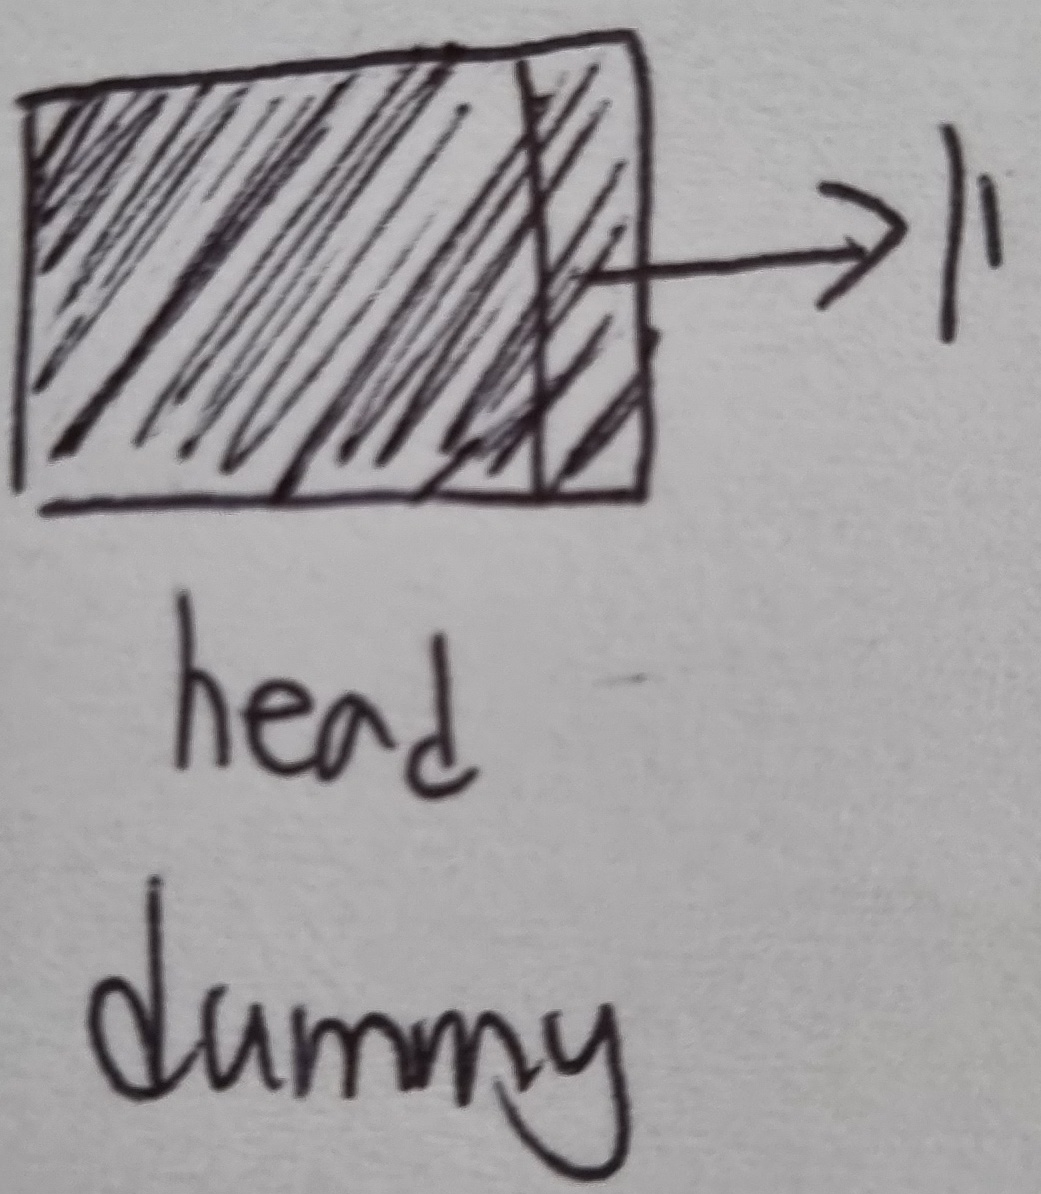 head
dummy